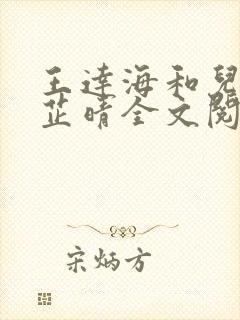 王達海和兒
芷晴全文閱
宋炳方